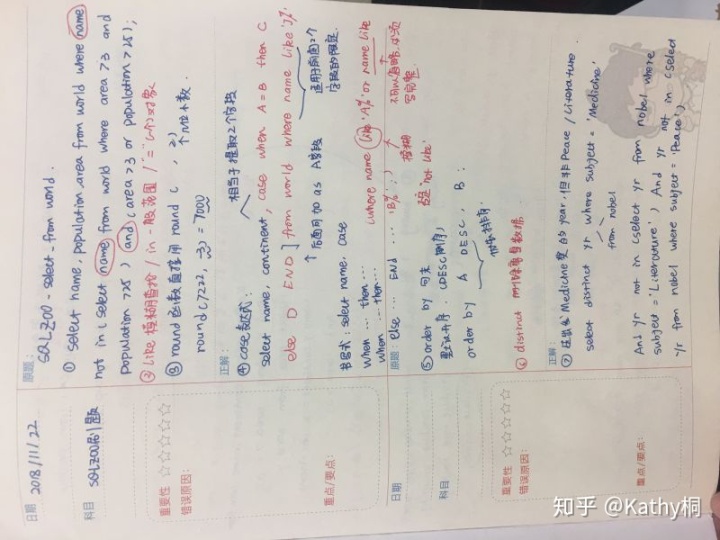 日期 2018/11/22
科目 SQLZOO刷题
重要性 ☆☆☆☆☆
错误原因:
重点/要点:
原题: SQLZOO - select from world.
① select name, population, area from world where name
not in (select name from world where area >3 and
population >25) and (area >3 or population >25);
② like 模糊查找 / in 一般范围 / "=" 一个对象
③ round函数直接用 round ( , 2)
↑ 小数位数.
round (7222, -3) = 7000
正解:
④ case表达式: 相当于提取2个字段
select name, continent, case when A=B then C
else D END ] from world where name like 'J%'
↑ 后面可加 as A字段
适用于前面2个
字段的限定
书写式: select name, case
when ... then ...
when ... then ...
else ... END ...
(where name like 'A%' or name like
'B%' ;)
模糊
否定 'not like'
不可以省略, 必须
写完整
日期
原题:
⑤ order by 句末
默认升序, (DESC倒序)
order by A DESC, B ;
依次排序
⑥ distinct 删除重复数据.
重要性 ☆☆☆☆☆
错误原因:
重点/要点:
正解:
⑦ 选出有Medicine奖的year, 但非Peace / Literature
select distinct yr where subject = 'Medicine'
from nobel
And yr not in (select yr from nobel where
subject = 'Literature') And yr not in (select
yr from nobel where subject = 'Peace')
知乎 @Kathy桐